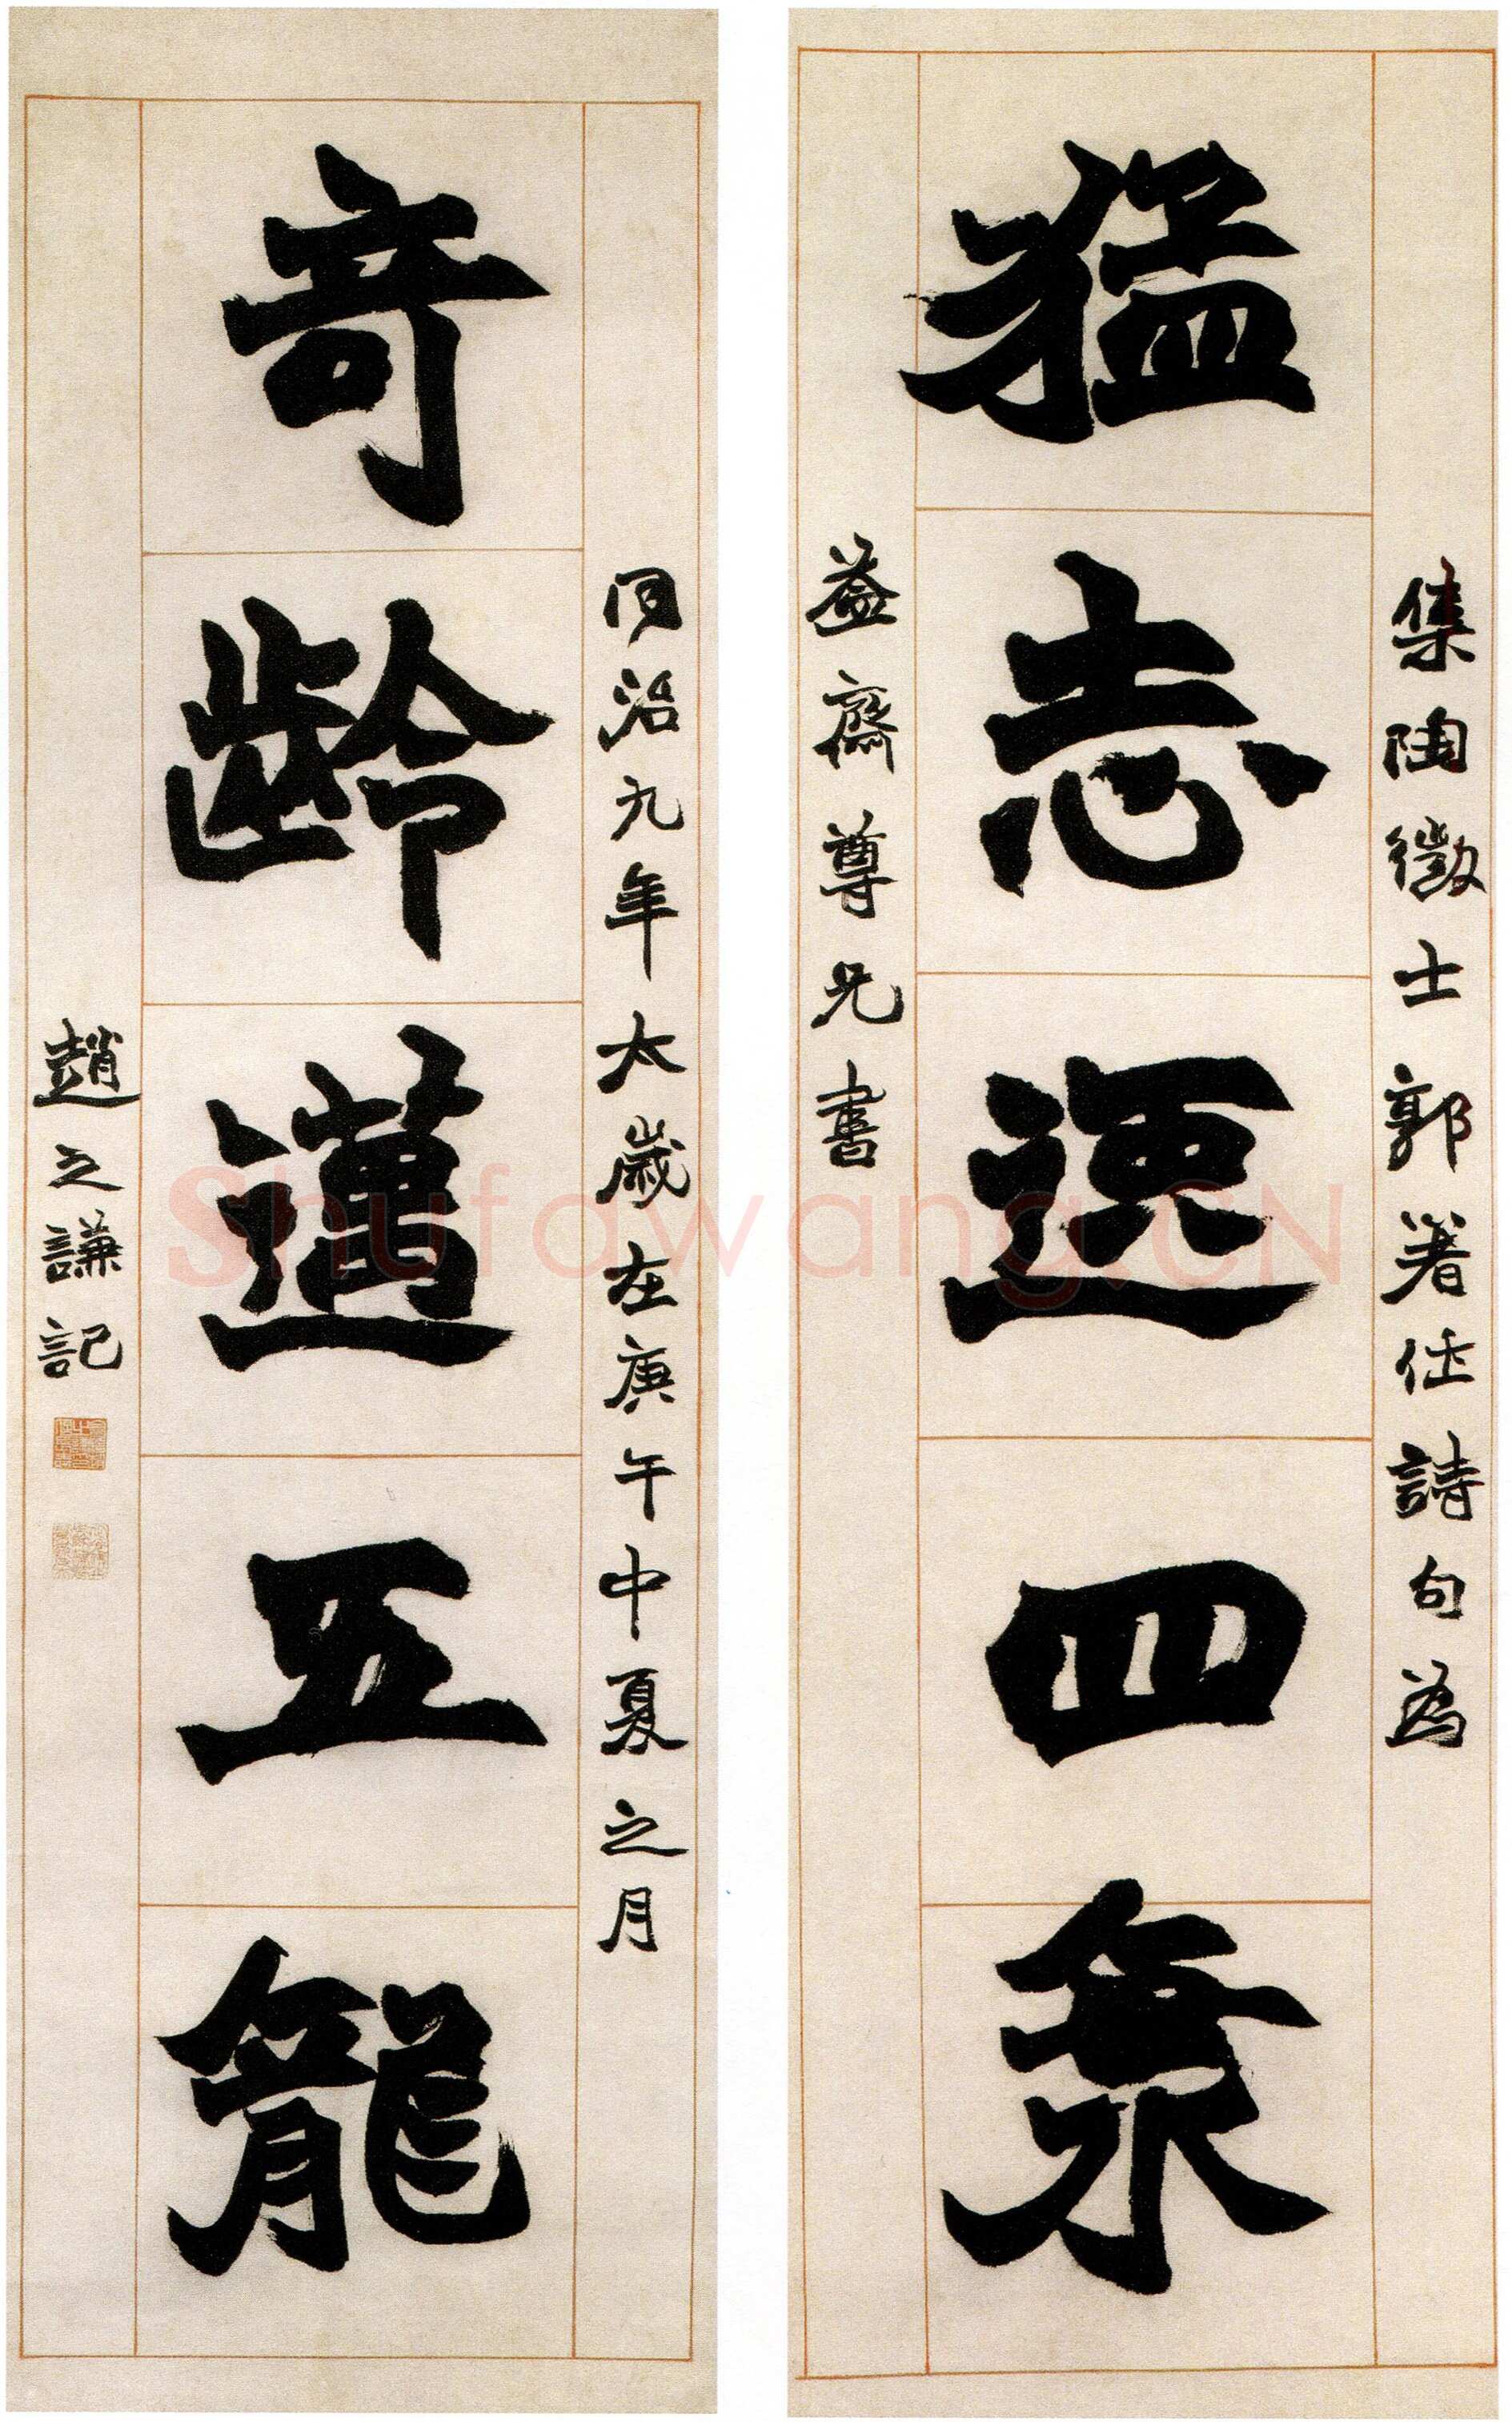 集陶徵士郭著作詩句為
猛志逸四海
益齋尊兄書
同治九年太歲在庚午中夏之月
奇齡邁五龍
趙之謙記
Shufawang.CN